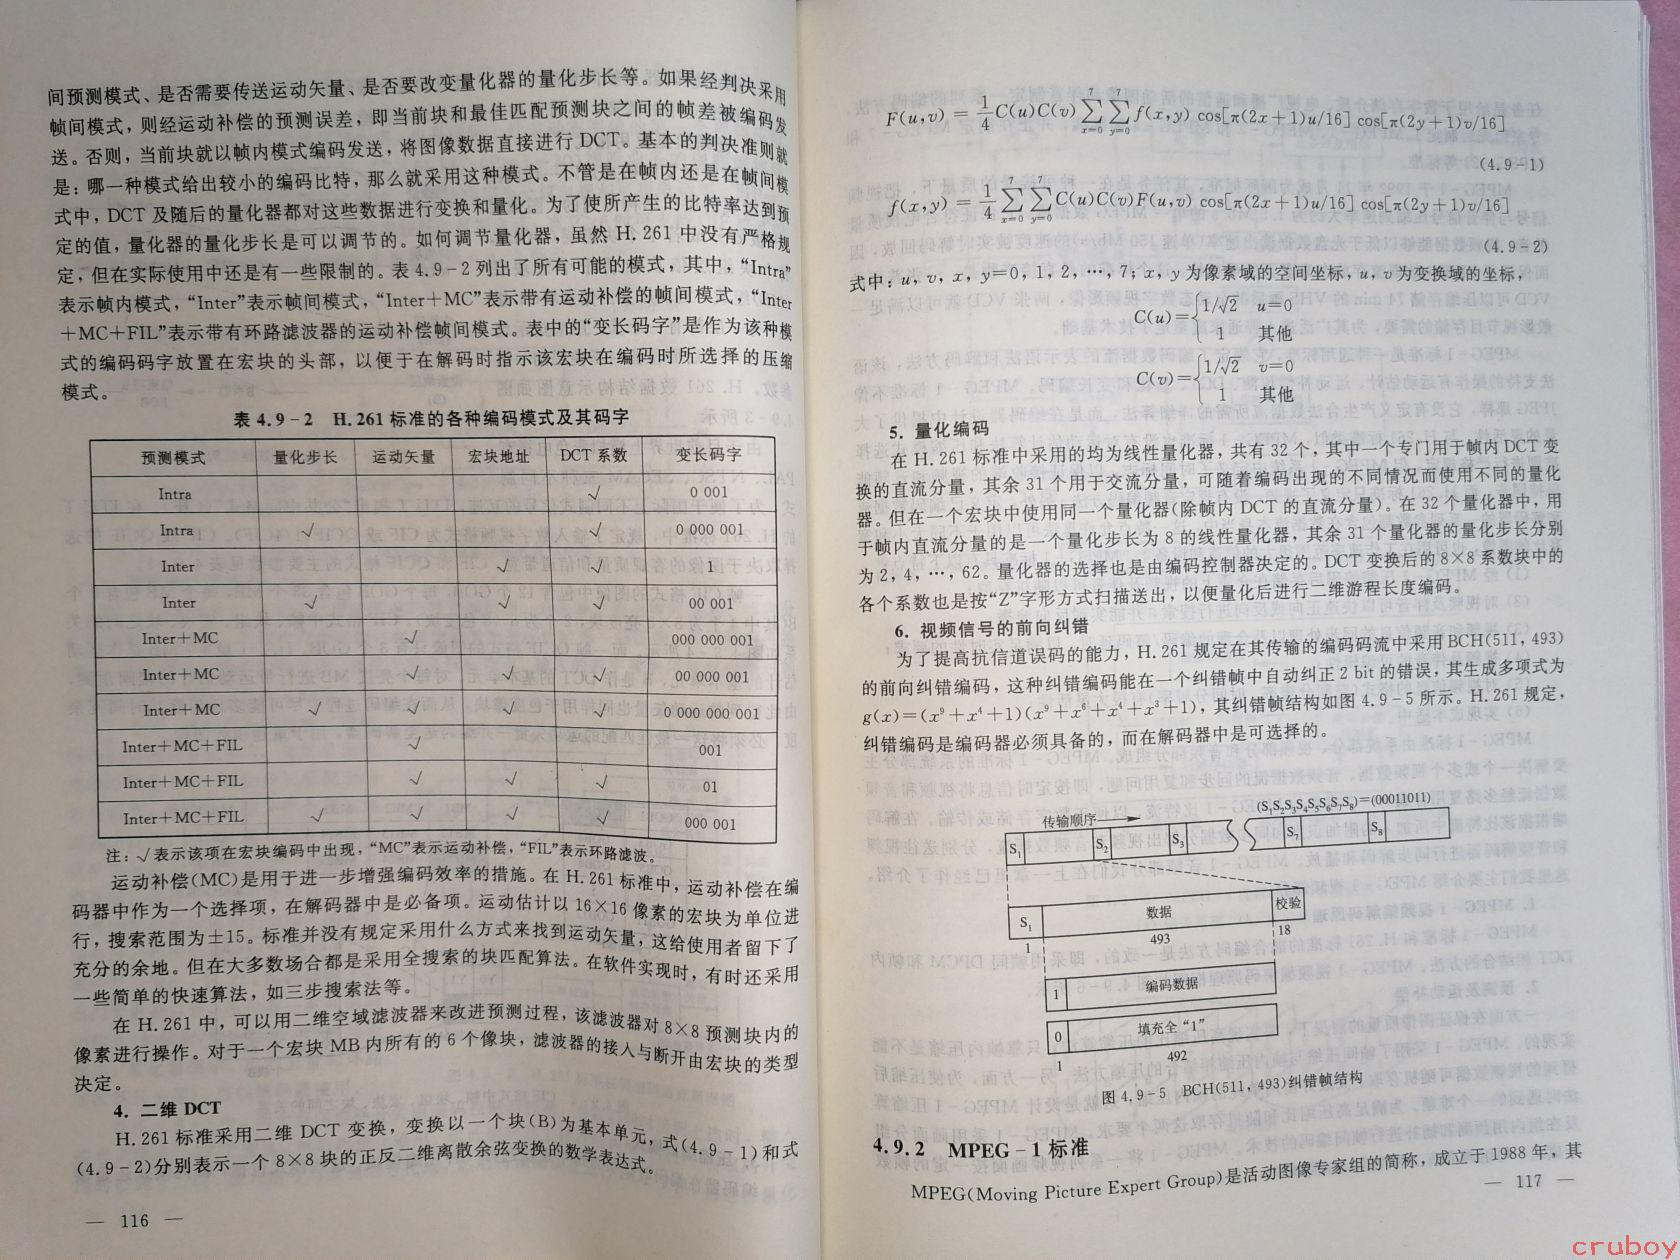 间预测模式、是否需要传送运动矢量、是否要改变量化器的量化步长等。如果经判决采用
帧间模式，则经运动补偿的预测误差，即当前块和最佳匹配预测块之间的帧差被编码发
送。否则，当前块就以帧内模式编码发送，将图像数据直接进行DCT。基本的判决准则就
是：哪一种模式给出较小的编码比特，那么就采用这种模式。不管是在帧内还是在帧间模
式中，DCT及随后的量化器都对这些数据进行变换和量化。为了使所产生的比特率达到预
定的值，量化器的量化步长是可以调节的。如何调节量化器，虽然H.261中没有严格规
定，但在实际使用中还是有一些限制的。表4.9-2列出了所有可能的模式，其中，“Intra”
表示帧内模式，“Inter”表示帧间模式，“Inter+MC”表示带有运动补偿的帧间模式，“Inter
+MC+FIL”表示带有环路滤波器的运动补偿帧间模式。表中的“变长码字”是作为该种模
式的编码码字放置在宏块的头部，以便于在解码时指示该宏块在编码时所选择的压缩
模式。
表 4.9-2 H.261标准的各种编码模式及其码字
预测模式 量化步长 运动矢量 宏块地址 DCT系数 变长码字
Intra √ 0 001
Intra √ √ 0 000 001
Inter √ √ 1
Inter √ √ √ 00 001
Inter+MC √ 000 000 001
Inter+MC √ √ √ 00 000 001
Inter+MC √ √ √ √ 0 000 000 001
Inter+MC+FIL √ 001
Inter+MC+FIL √ √ √ 01
Inter+MC+FIL √ √ √ √ 000 001
注：√表示该项在宏块编码中出现，“MC”表示运动补偿，“FIL”表示环路滤波。
运动补偿(MC)是用于进一步增强编码效率的措施。在H.261标准中，运动补偿在编
码器中作为一个选择项，在解码器中是必备项。运动估计以16×16像素的宏块为单位进
行，搜索范围为±15。标准并没有规定采用什么方式来找到运动矢量，这给使用者留下了
充分的余地。但在大多数场合都是采用全搜索的块匹配算法。在软件实现时，有时还采用
一些简单的快速算法，如三步搜索法等。
在H.261中，可以用二维空域滤波器来改进预测过程，该滤波器对8×8预测块内的
像素进行操作。对于一个宏块MB内所有的6个像块，滤波器的接入与断开由宏块的类型
决定。
4. 二维DCT
H.261标准采用二维DCT变换，变换以一个块(B)为基本单元，式(4.9-1)和式
(4.9-2)分别表示一个8×8块的正反二维离散余弦变换的数学表达式。
— 116 —
F(u,v) = 1/4 C(u)C(v) ∑_{x=0}^{7} ∑_{y=0}^{7} f(x,y) cos[π(2x+1)u/16] cos[π(2y+1)v/16]
(4.9-1)
f(x,y) = 1/4 ∑_{x=0}^{7} ∑_{y=0}^{7} C(u)C(v)F(u,v) cos[π(2x+1)u/16] cos[π(2y+1)v/16]
(4.9-2)
式中：u，v，x，y=0，1，2，…，7；x，y为像素域的空间坐标，u，v为变换域的坐标，
C(u)={1/√2 u=0
1 其他
C(v)={1/√2 v=0
1 其他
5. 量化编码
在H.261标准中采用的均为线性量化器，共有32个，其中一个专门用于帧内DCT变
换的直流分量，其余31个用于交流分量，可随着编码出现的不同情况而使用不同的量化
器。但在一个宏块中使用同一个量化器(除帧内DCT的直流分量)。在32个量化器中，用
于帧内直流分量的是一个量化步长为8的线性量化器，其余31个量化器的量化步长分别
为2，4，…，62。量化器的选择也是由编码控制器决定的。DCT变换后的8×8系数块中的
各个系数也是按“Z”字形方式扫描送出，以便量化后进行二维游程长度编码。
6. 视频信号的前向纠错
为了提高抗信道误码的能力，H.261规定在其传输的编码码流中采用BCH(511，493)
的前向纠错编码，这种纠错编码能在一个纠错帧中自动纠正2 bit的错误，其生成多项式为
g(x)=(x⁹+x⁴+1)(x⁹+x⁶+x⁴+x³+1)，其纠错帧结构如图4.9-5所示。H.261规定，
纠错编码是编码器必须具备的，而在解码器中是可选择的。
传输顺序 (S₁S₂S₃S₄S₅S₆S₇S₈)=(00011011)
S₁ S₂ S₃ S₇ S₈
S₁ 数据 校验
1 493 18
1 编码数据
0 填充全“1”
1 492
图 4.9-5 BCH(511，493)纠错帧结构
4.9.2 MPEG-1标准
MPEG(Moving Picture Expert Group)是活动图像专家组的简称，成立于1988年，其
— 117 —
cruboy